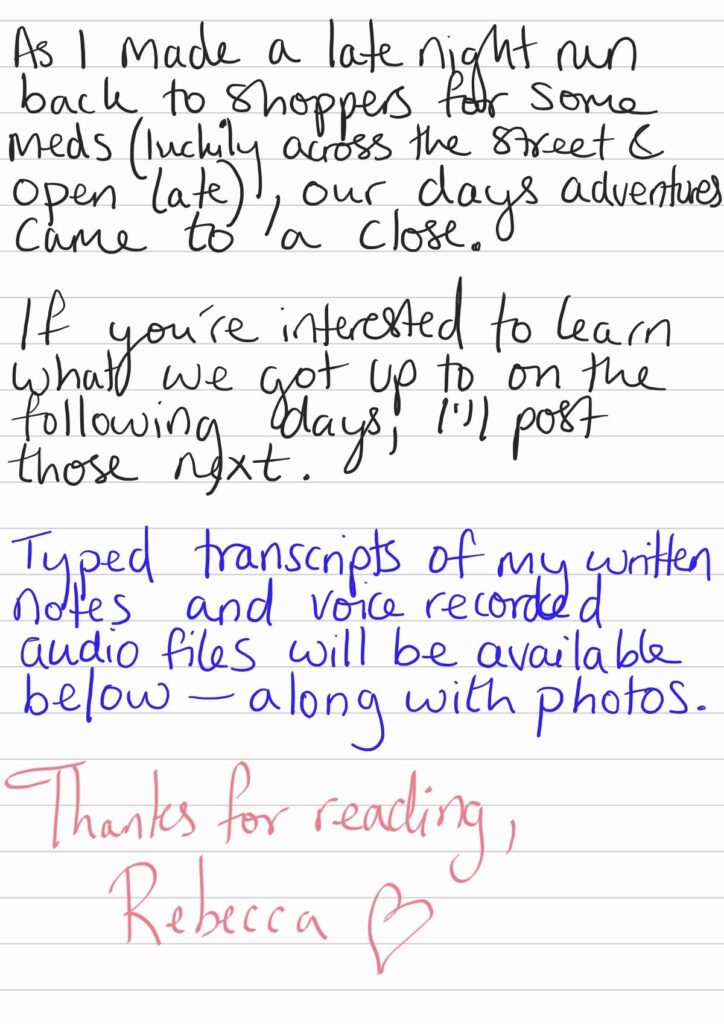 As I made a late night run
back to shoppers for some
meds (luckily across the street &
open late), our days adventures
came to a close.
If you're interested to learn
what we got up to on the
following days, I'll post
those next.
Typed transcripts of my written
notes and voice recorded
audio files will be available
below — along with photos.
Thanks for reading,
Rebecca ♡